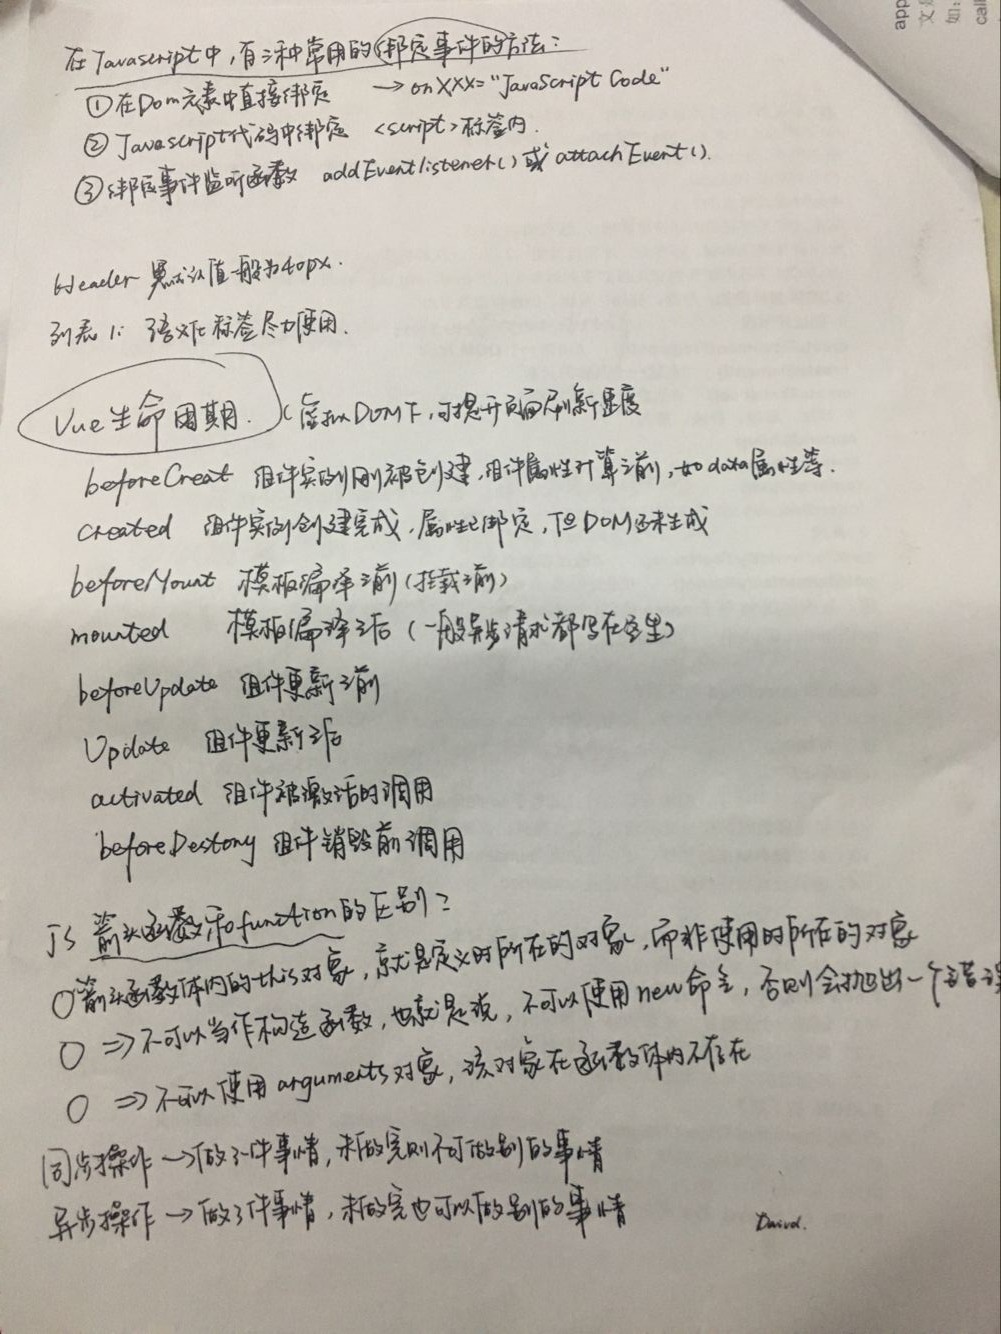 app
文
如:
call
在Javascript中,有三种常用的绑定事件的方法:
①在Dom元素中直接绑定 →onXXX="JavaScript Code"
②Javascript代码中绑定 <script>标签内.
③绑定事件监听函数 addEventlistener()或attachEvent().
Header 默认值一般为40px.
列表1: 语义化标签尽力使用.
Vue生命周期. (虚拟DOM下,可提升页面刷新速度
beforeCreat 组件实例刚被创建,组件属性计算之前,如data属性等.
created 组件实例创建完成,属性已绑定,但DOM还未生成
beforeMount 模板编译之前(挂载之前)
mounted 模板编译之后(一般异步请求都写在这里)
beforeUpdate 组件更新之前
Update 组件更新之后
activated 组件被激活的调用
beforeDestony 组件销毁前调用
JS 箭头函数和function的区别:
○箭头函数体内的this对象,就是定义时所在的对象,而非使用时所在的对象
○ =>不可以当作构造函数,也就是说,不可以使用new命令,否则会抛出一个错误
○ =>不可以使用arguments对象,该对象在函数体内不存在
同步操作→做了一件事情,未做完则不可做别的事情
异步操作→做了件事情,未做完也可以做别的事情